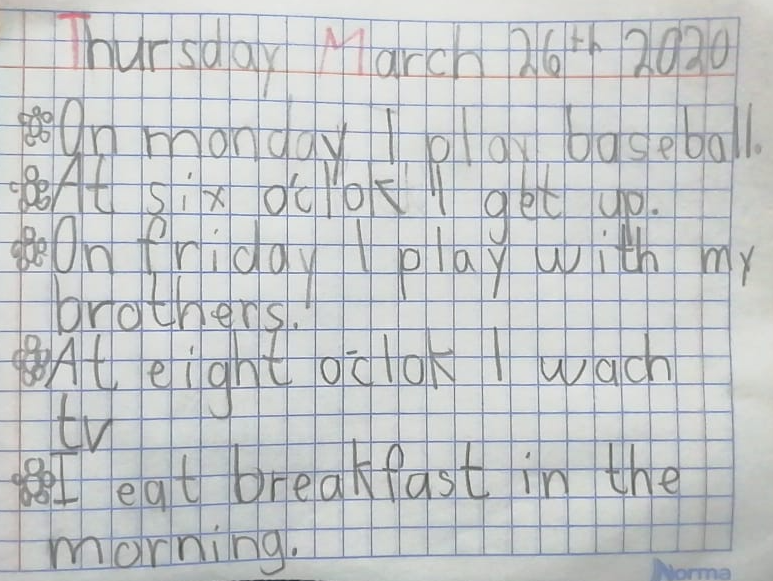 Thursday March 26th 2020
On monday I play baseball.
At six óclok I get up.
On friday I play with my
brothers.
At eight óclok I wach
tv
I eat breakfast in the
morning.
Norma